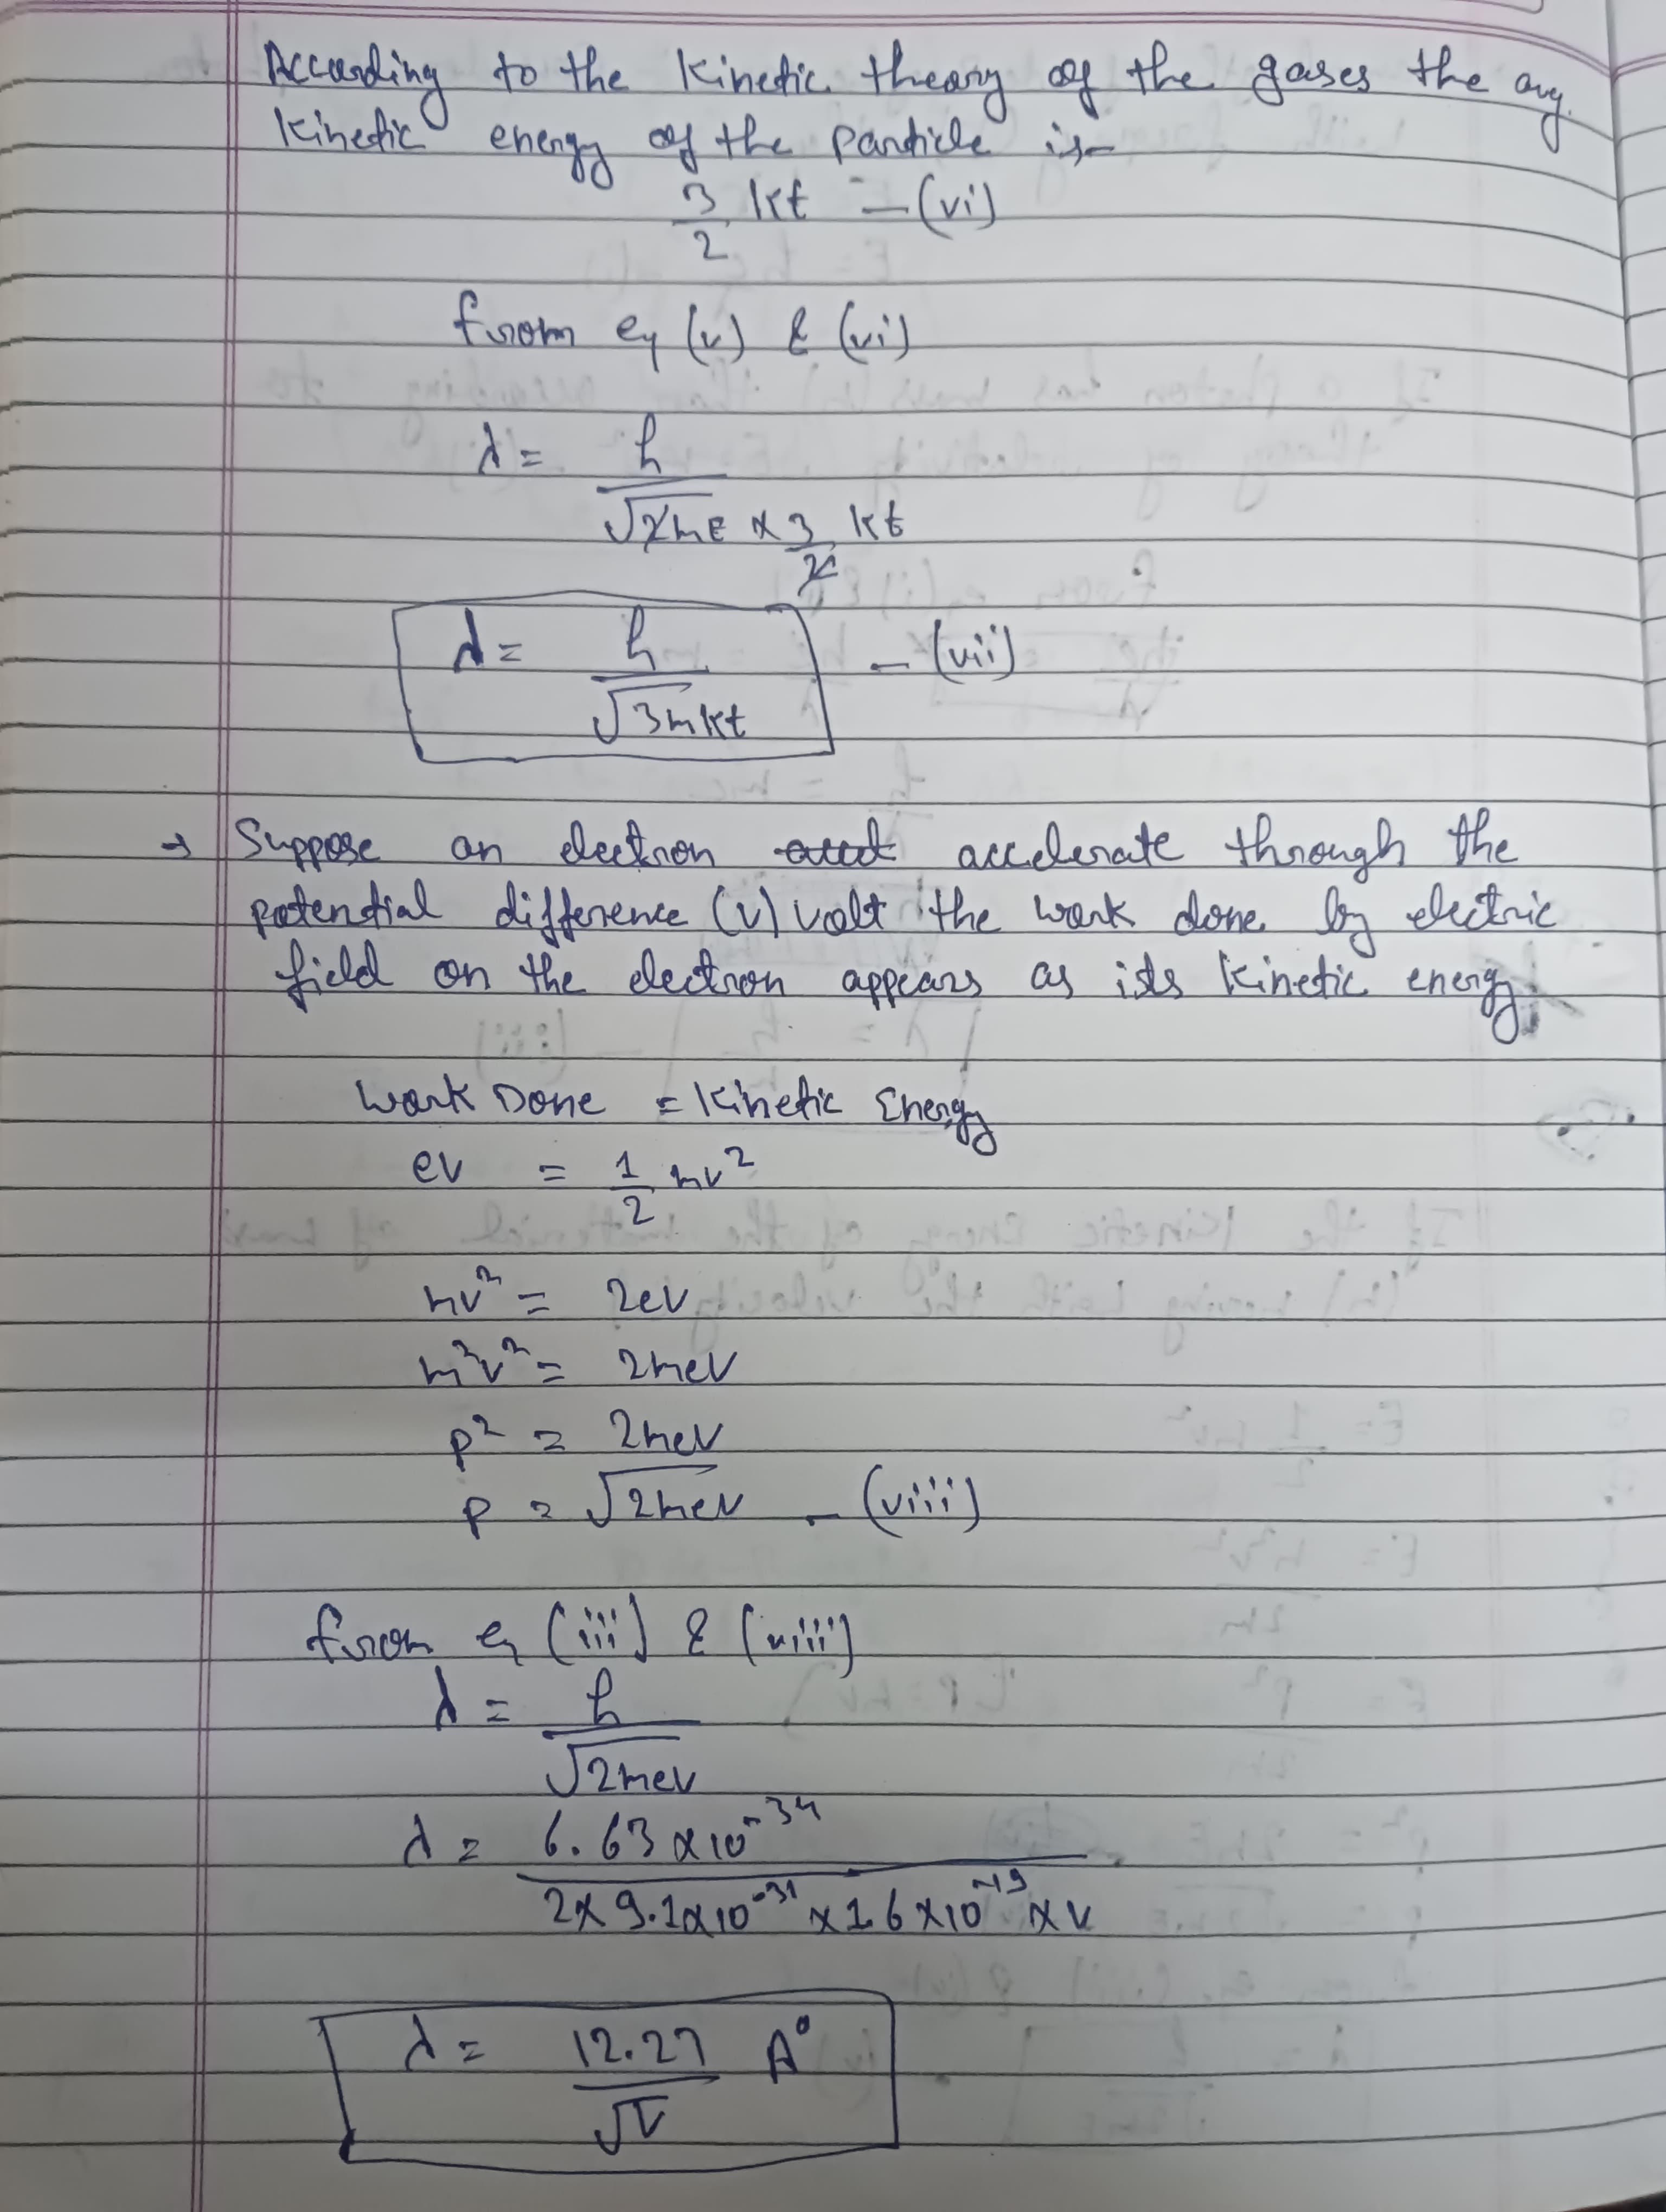 According to the kinetic theory of the gases the avg.
kinetic energy of the particle is-
3/2 kt - (vi)
from eq (v) & (vi)
λ = h / √2mE x 3/2 kt
λ = h / √3mkt - (vii)
→ Suppose an electron accelerate through the
potential difference (v) volt the work done by electric
field on the electron appears as its kinetic energy.
Work Done = Kinetic Energy
ev = 1/2 mv²
mv² = 2ev
m²v² = 2mev
p² = 2mev
p = √2mev - (viii)
from eq (iii) & (viii)
λ = h / √2mev
λ = 6.63 x 10⁻³⁴ / 2 x 9.1 x 10⁻³¹ x 1.6 x 10⁻¹⁹ x v
λ = 12.27 / √V A°